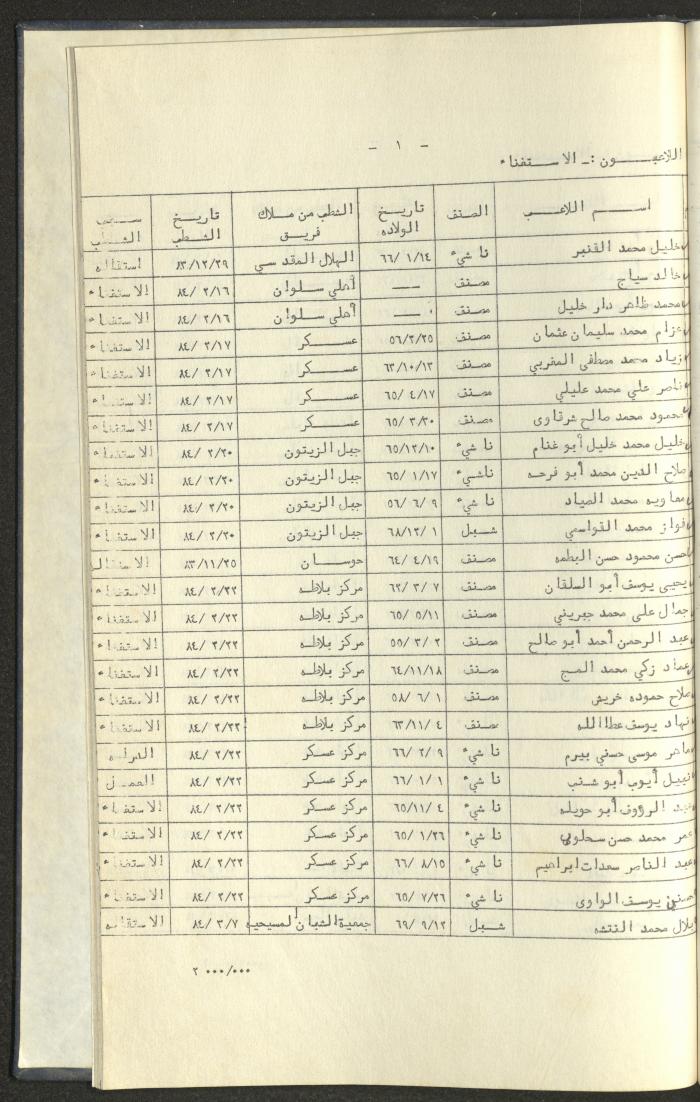 - ١ -
اللاعبـــون :ـ الاستغناء
اســـم اللاعــب الصنف تاريــخ الولاده الشطب من مـلاك فريــق تاريــخ الشطـب ســبب الشطـب
خليل محمد القنبر ناشيء ٦٦/ ١/١٤ الهلال المقدسي ٨٣/١٢/٢٩ استقاله
خالد سياج مصنف ــ أهلي سلـوان ٨٤/ ٢/١٦ الاستغناء
محمد ظاهر دار خليل مصنف ــ أهلي سلـوان ٨٤/ ٢/١٦ الاستغناء
عزام محمد سليمان عثمان مصنف ٥٦/٢/٢٥ عســكر ٨٤/ ٢/١٧ الاستغناء
زياد محمد مصطفى المغربي مصنف ٦٣/١٠/١٣ عســكر ٨٤/ ٢/١٧ الاستغناء
ناصر علي محمد عليلي مصنف ٦٥/ ٤/١٧ عســكر ٨٤/ ٢/١٧ الاستغناء
محمود محمد صالح شرقاوى مصنف ٦٥/ ٣/٣٠ عســكر ٨٤/ ٢/١٧ الاستغناء
خليل محمد خليل أبو غنام ناشيء ٦٥/١٢/١٠ جبل الزيتون ٨٤/ ٢/٢٠ الاستغناء
صلاح الدين محمد أبو فرحـه ناشيء ٦٥/ ١/١٧ جبل الزيتون ٨٤/ ٢/٢٠ الاستغناء
معاويه محمد الصياد ناشيء ٥٦/ ٦/ ٩ جبل الزيتون ٨٤/ ٢/٢٠ الاستغناء
فواز محمد القواسمي شـبل ٦٨/١٢/ ١ جبل الزيتون ٨٤/ ٢/٢٠ الاستغناء
حسن محمود حسن البطمه مصنف ٦٤/ ٤/١٩ حوســان ٨٣/١١/٢٥
يحيى يوسف أبو السلقان مصنف ٦٢/ ٢/ ٧ مركز بلاطـه ٨٤/ ٢/٢٢ الاستغناء
جمال على محمد جبريني مصنف ٦٥/ ٥/١١ مركز بلاطـه ٨٤/ ٢/٢٢ الاستغناء
عبد الرحمن أحمد أبو صالح مصنف ٥٥/ ٣/ ٢ مركز بلاطـه ٨٤/ ٢/٢٢ الاستغناء
عماد زكي محمد مصنف ٦٤/١١/١٨ مركز بلاطـه ٨٤/ ٢/٢٢ الاستغناء
صلاح حموده خريش مصنف ٥٨/ ٦/ ١ مركز بلاطـه ٨٤/ ٢/٢٢ الاستغناء
نهاد يوسف عطاالله مصنف ٦٣/١١/ ٤ مركز بلاطـه ٨٤/ ٢/٢٢ الاستغناء
ماهر موسى حسني بيرم ناشيء ٦٦/ ٢/ ٩ مركز عسـكر ٨٤/ ٢/٢٢
نبيل أيوب أبو شنب ناشيء ٦٦/ ١/ ١ مركز عسـكر ٨٤/ ٢/٢٢ العمــل
عبد الرؤوف أبو حويله ناشيء ٦٥/١١/ ٤ مركز عسـكر ٨٤/ ٢/٢٢ الاستغناء
عمر محمد حسن سحلوبي ناشيء ٦٥/ ١/٢٦ مركز عسـكر ٨٤/ ٢/٢٢ الاستغناء
عبد الناصر سعدات ابراهيم ناشيء ٦٦/ ٨/١٥ مركز عسـكر ٨٤/ ٢/٢٢ الاستغناء
حسني يوسف الواوى ناشيء ٦٥/ ٧/٢٦ مركز عسـكر ٨٤/ ٢/٢٢ الاستغناء
بلال محمد النتشه شـبل ٦٩/ ٩/١٢ جمعية الشبان المسيحيه ٨٤/ ٣/ ٧ الاستقاله
٢ ٠٠٠/٠٠٠